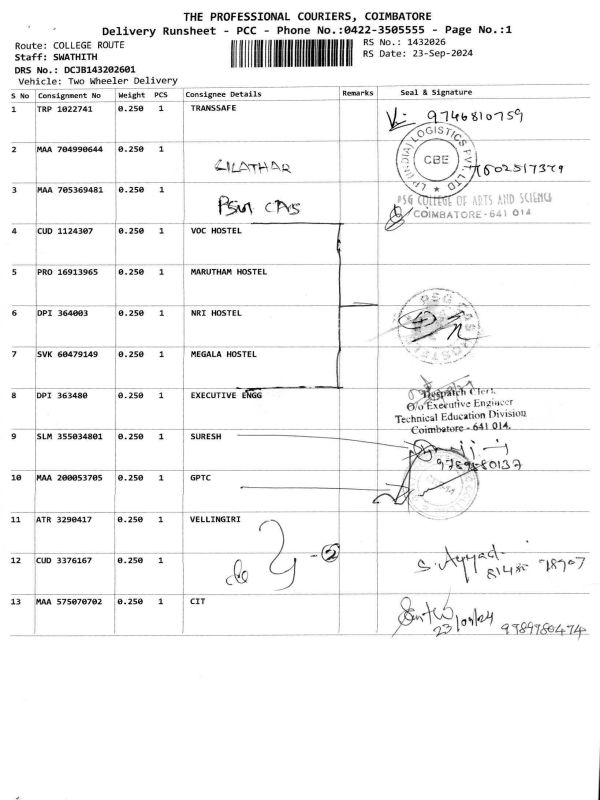 THE PROFESSIONAL COURIERS, COIMBATORE
Delivery Runsheet - PCC - Phone No.:0422-3505555 - Page No.:1
Route: COLLEGE ROUTE
RS No.: 1432026
Staff: SWATHITH
RS Date: 23-Sep-2024
DRS No.: DCJB143202601
Vehicle: Two Wheeler Delivery
S No Consignment No Weight PCS Consignee Details Remarks Seal & Signature
1 TRP 1022741 0.250 1 TRANSSAFE 9746810759
2 MAA 704990644 0.250 1
(INDIA) LOGISTICS PVT. LTD
CBE
3 MAA 705369481 0.250 1 PSG CAS
PSG COLLEGE OF ARTS AND SCIENCE
COIMBATORE-641 014
4 CUD 1124307 0.250 1 VOC HOSTEL
5 PRO 16913965 0.250 1 MARUTHAM HOSTEL
6 DPI 364003 0.250 1 NRI HOSTEL
PSG CAS HOSTEL
7 SVK 60479149 0.250 1 MEGALA HOSTEL
8 DPI 363480 0.250 1 EXECUTIVE ENGG
Despatch Clerk
O/o Executive Engineer
Technical Education Division
Coimbatore - 641 014.
9 SLM 355034801 0.250 1 SURESH
10 MAA 200053705 0.250 1 GPTC
11 ATR 3290417 0.250 1 VELLINGIRI
2
12 CUD 3376167 0.250 1
S. Ayyad.
13 MAA 575070702 0.250 1 CIT
23/09/24 9789780474